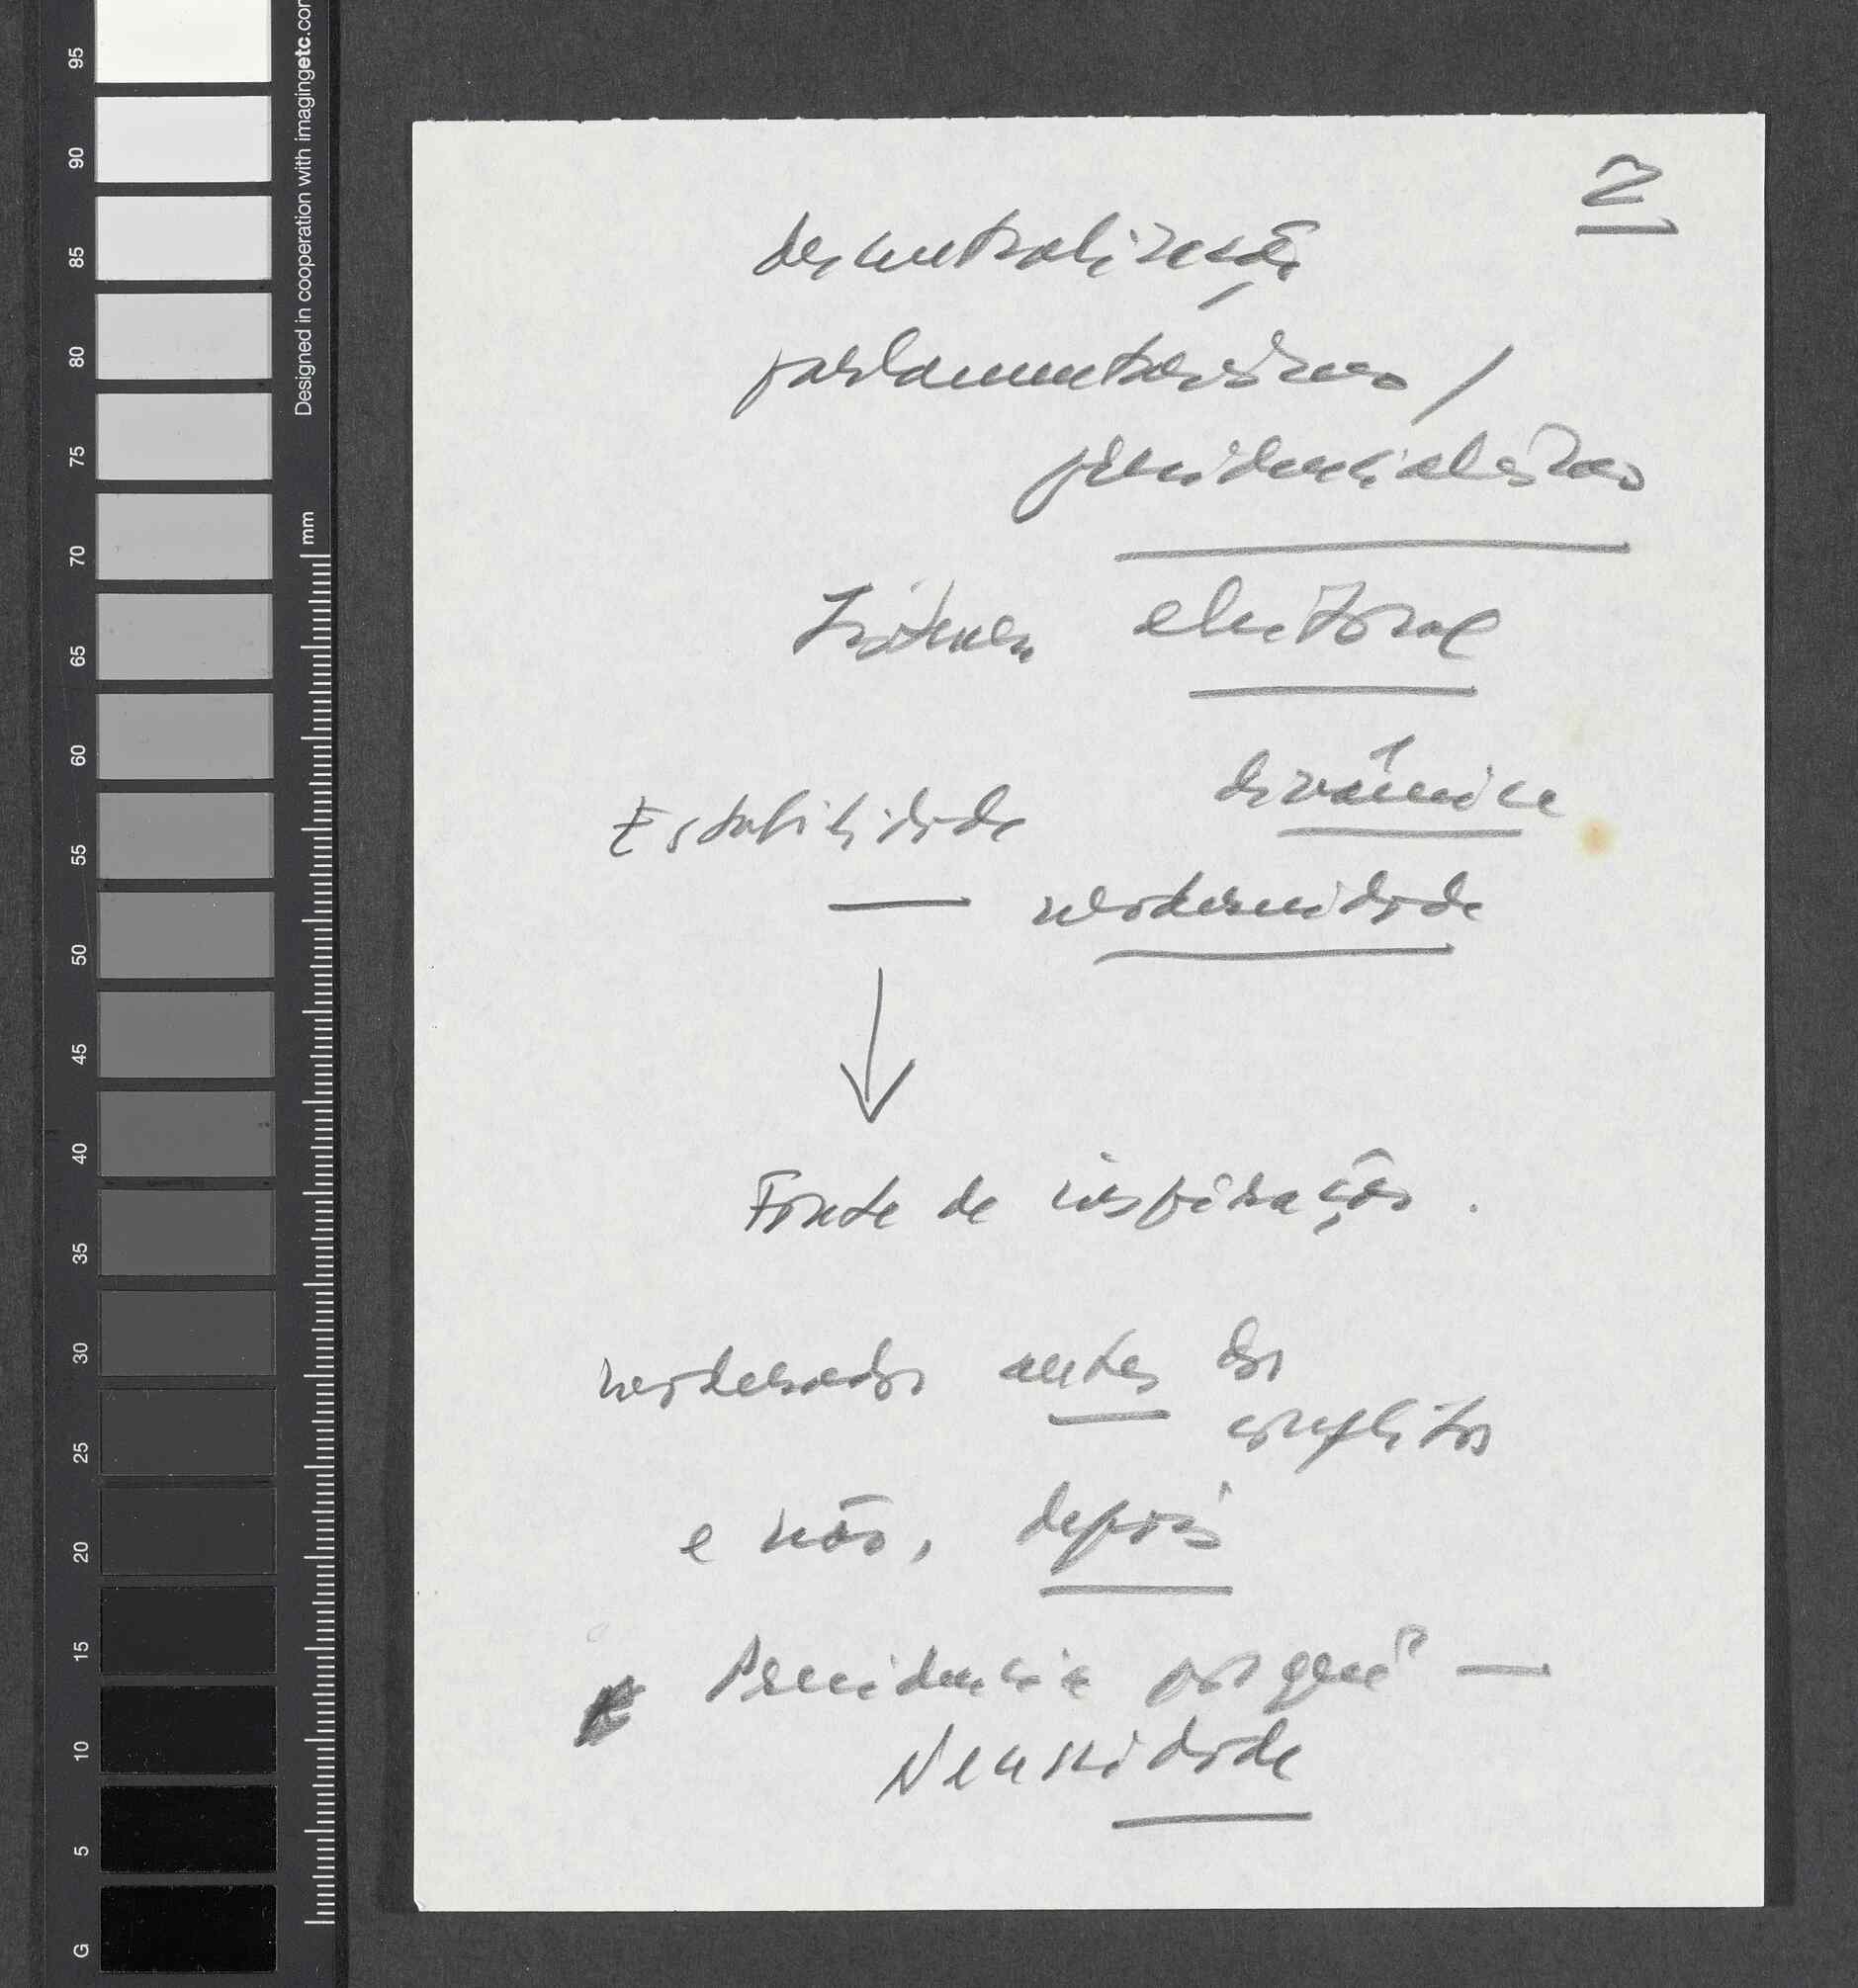 2
descentralização
parlamentarismo /
presidencialismo
Sistema eleitoral
dinâmica
Estabilidade
— modernidade
Fonte de inspiração.
moderador antes dos
conflitos
e não, depois
Presidência porquê? —
Necessidade
95
90
85
80
75
70
65
60
55
50
45
40
35
30
25
20
15
10
5
G
Designed in cooperation with imagingetc.com
mm